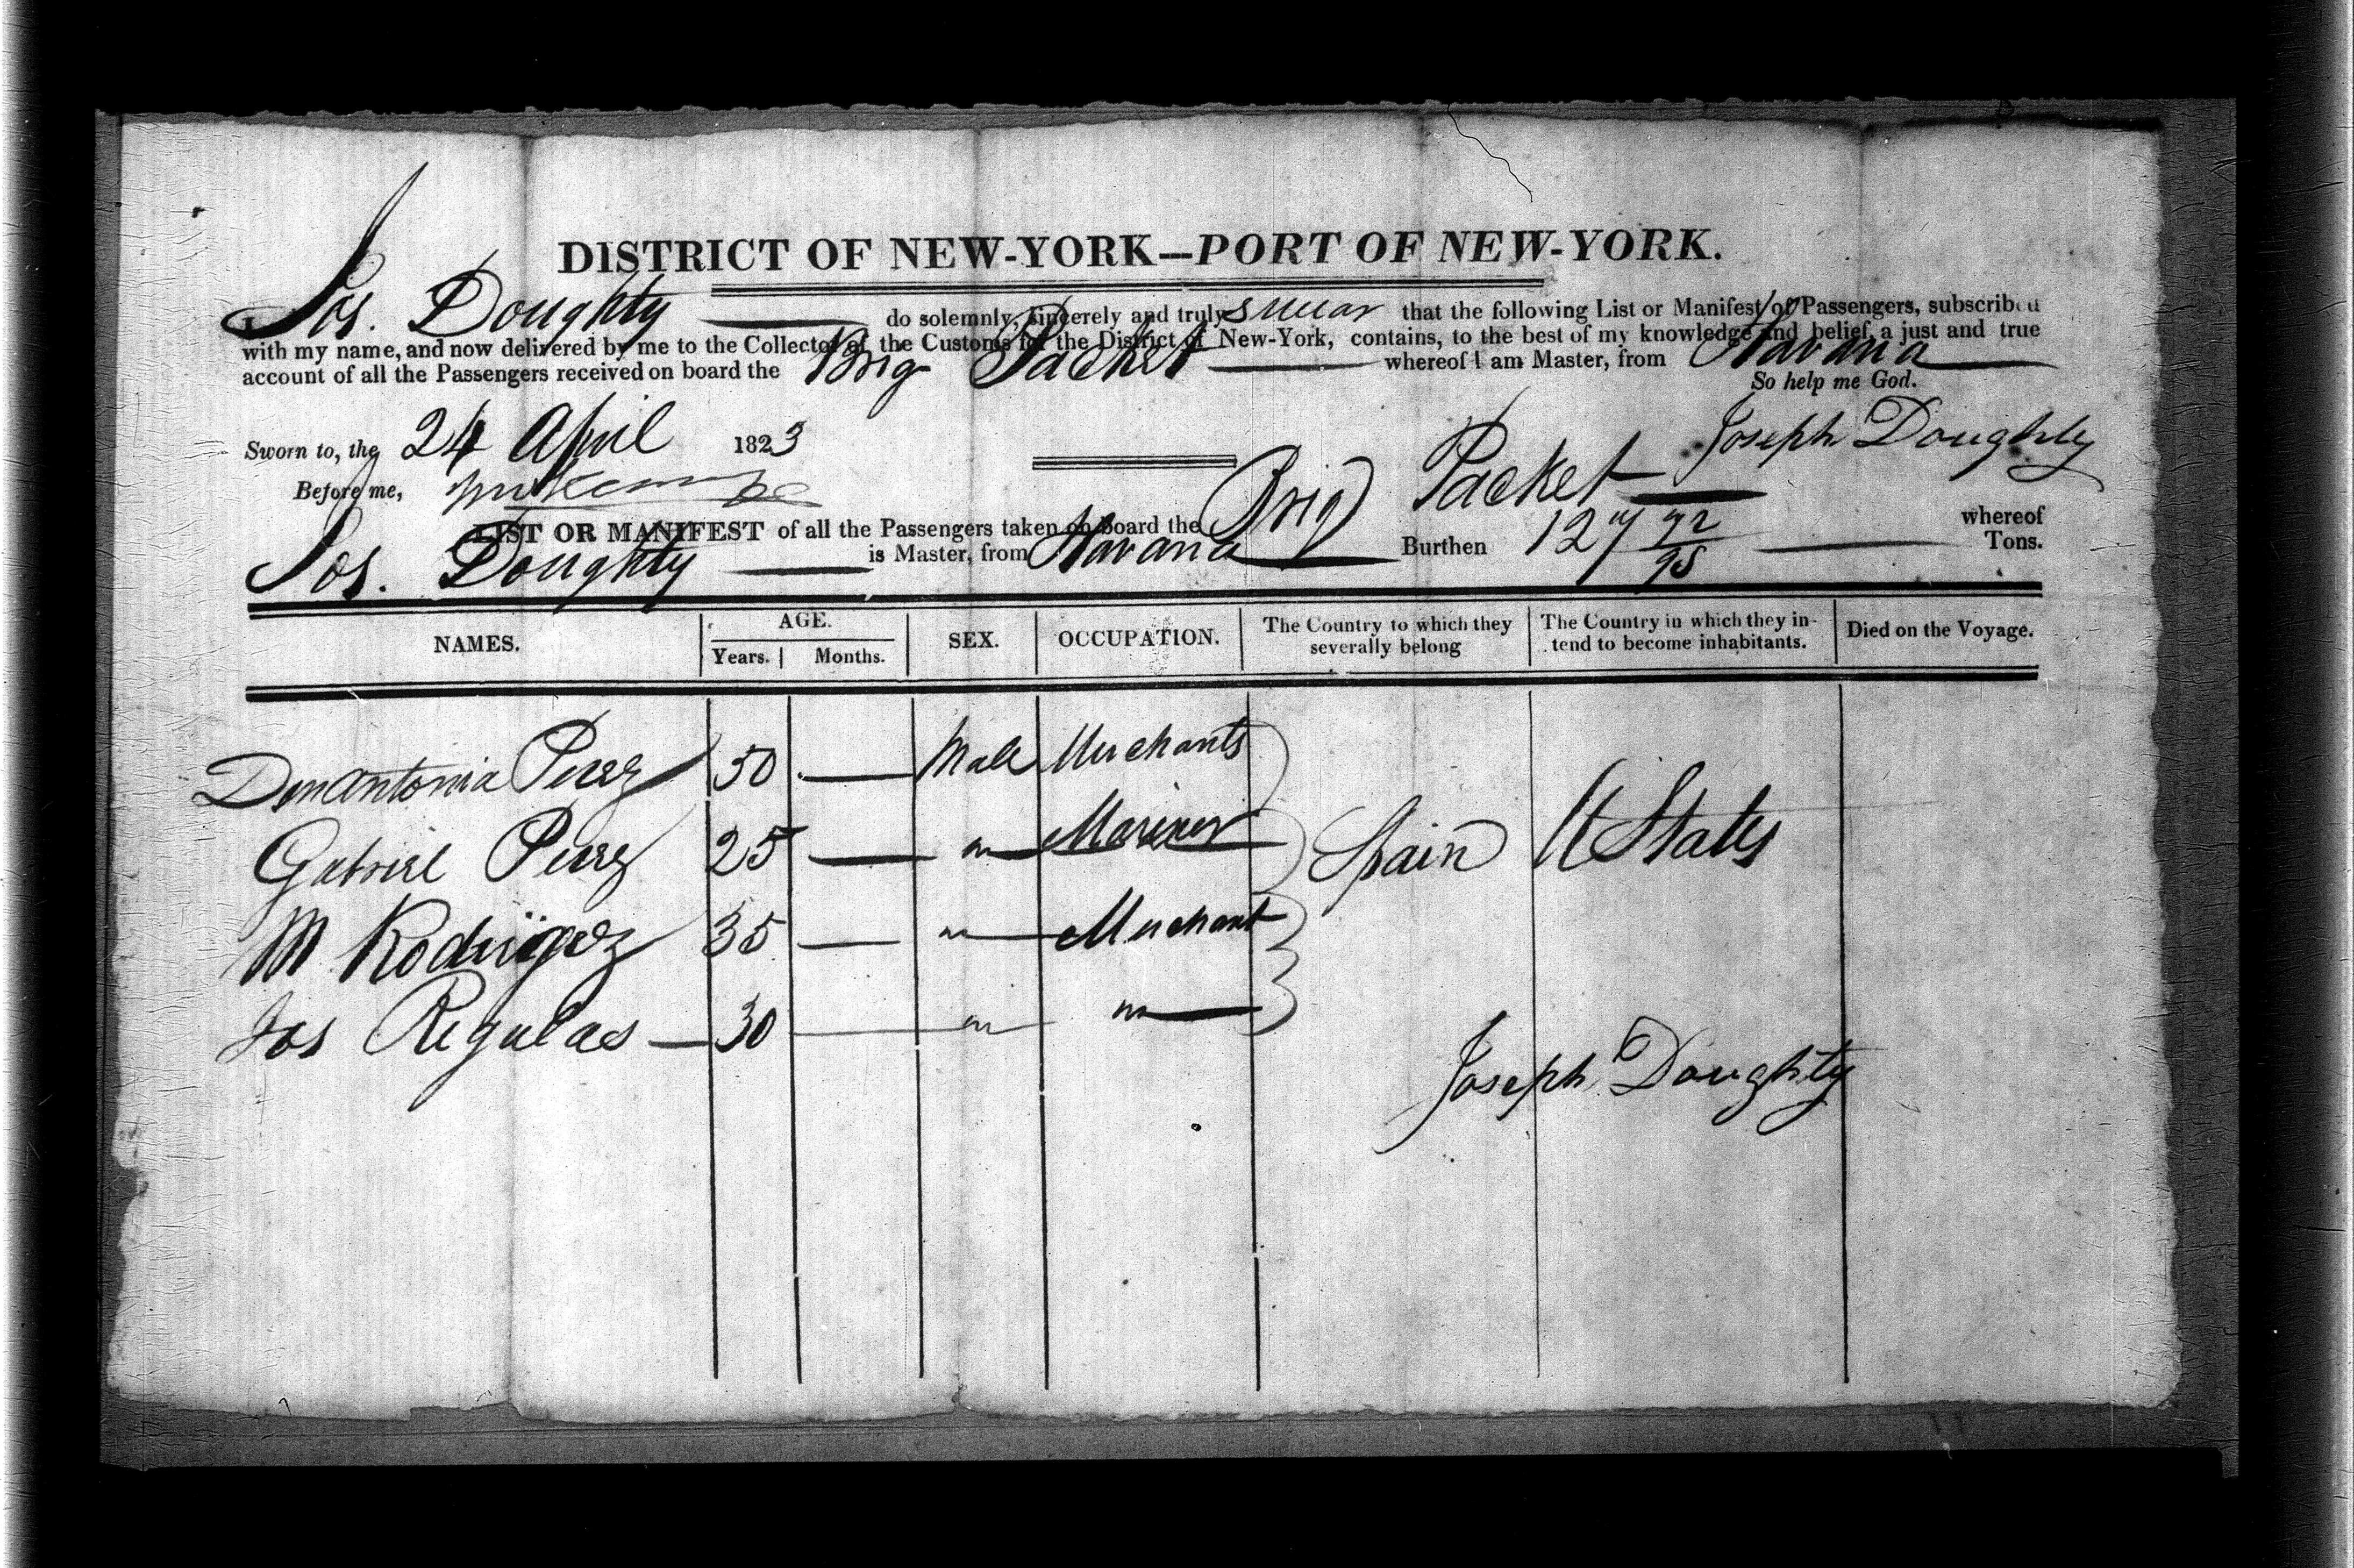 DISTRICT OF NEW-YORK—PORT OF NEW-YORK.
I, Jos. Doughty do solemnly, sincerely and truly swear that the following List or Manifest of Passengers, subscribed
with my name, and now delivered by me to the Collector of the Customs for the District of New-York, contains, to the best of my knowledge and belief, a just and true
account of all the Passengers received on board the Brig Packet whereof I am Master, from Havana
So help me God.
Sworn to, the 24 April 1823
Joseph Doughty
Before me,
LIST OR MANIFEST of all the Passengers taken on board the Brig Packet whereof
Jos. Doughty is Master, from Havana Burthen 127 92/95 Tons.
NAMES. AGE. Years. Months. SEX. OCCUPATION. The Country to which they severally belong The Country in which they intend to become inhabitants. Died on the Voyage.
Don Antonia Perez 50 — Male Merchants
Gabriel Perez 25 — " Mariner Spain U States
M Rodrigez 35 — " Merchant
Jos Regulas — 30 " "
Joseph Doughty